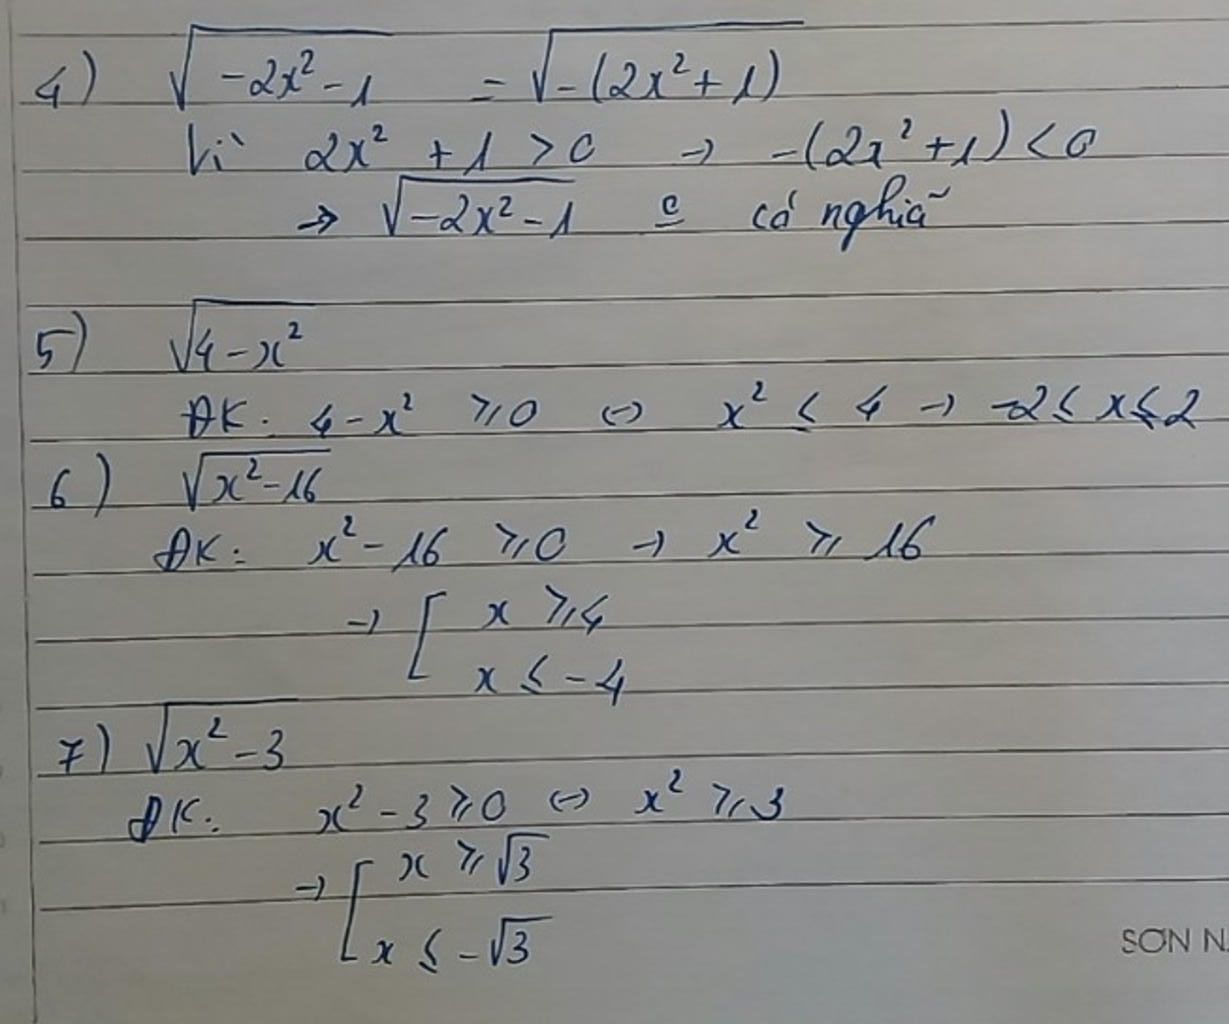 4) √(-2x² - 1) = √(-(2x² + 1))
Vì 2x² + 1 > 0 → -(2x² + 1) < 0
→ √(-2x² - 1) c̲ có nghiã
5) √(4 - x²)
ĐK: 4 - x² ≥ 0 ↔ x² ≤ 4 → -2 ≤ x ≤ 2
6) √(x² - 16)
ĐK: x² - 16 ≥ 0 → x² ≥ 16
→ [ x ≥ 4
x ≤ -4
7) √(x² - 3)
ĐK: x² - 3 ≥ 0 ↔ x² ≥ 3
→ [ x ≥ √3
x ≤ -√3
SƠN N